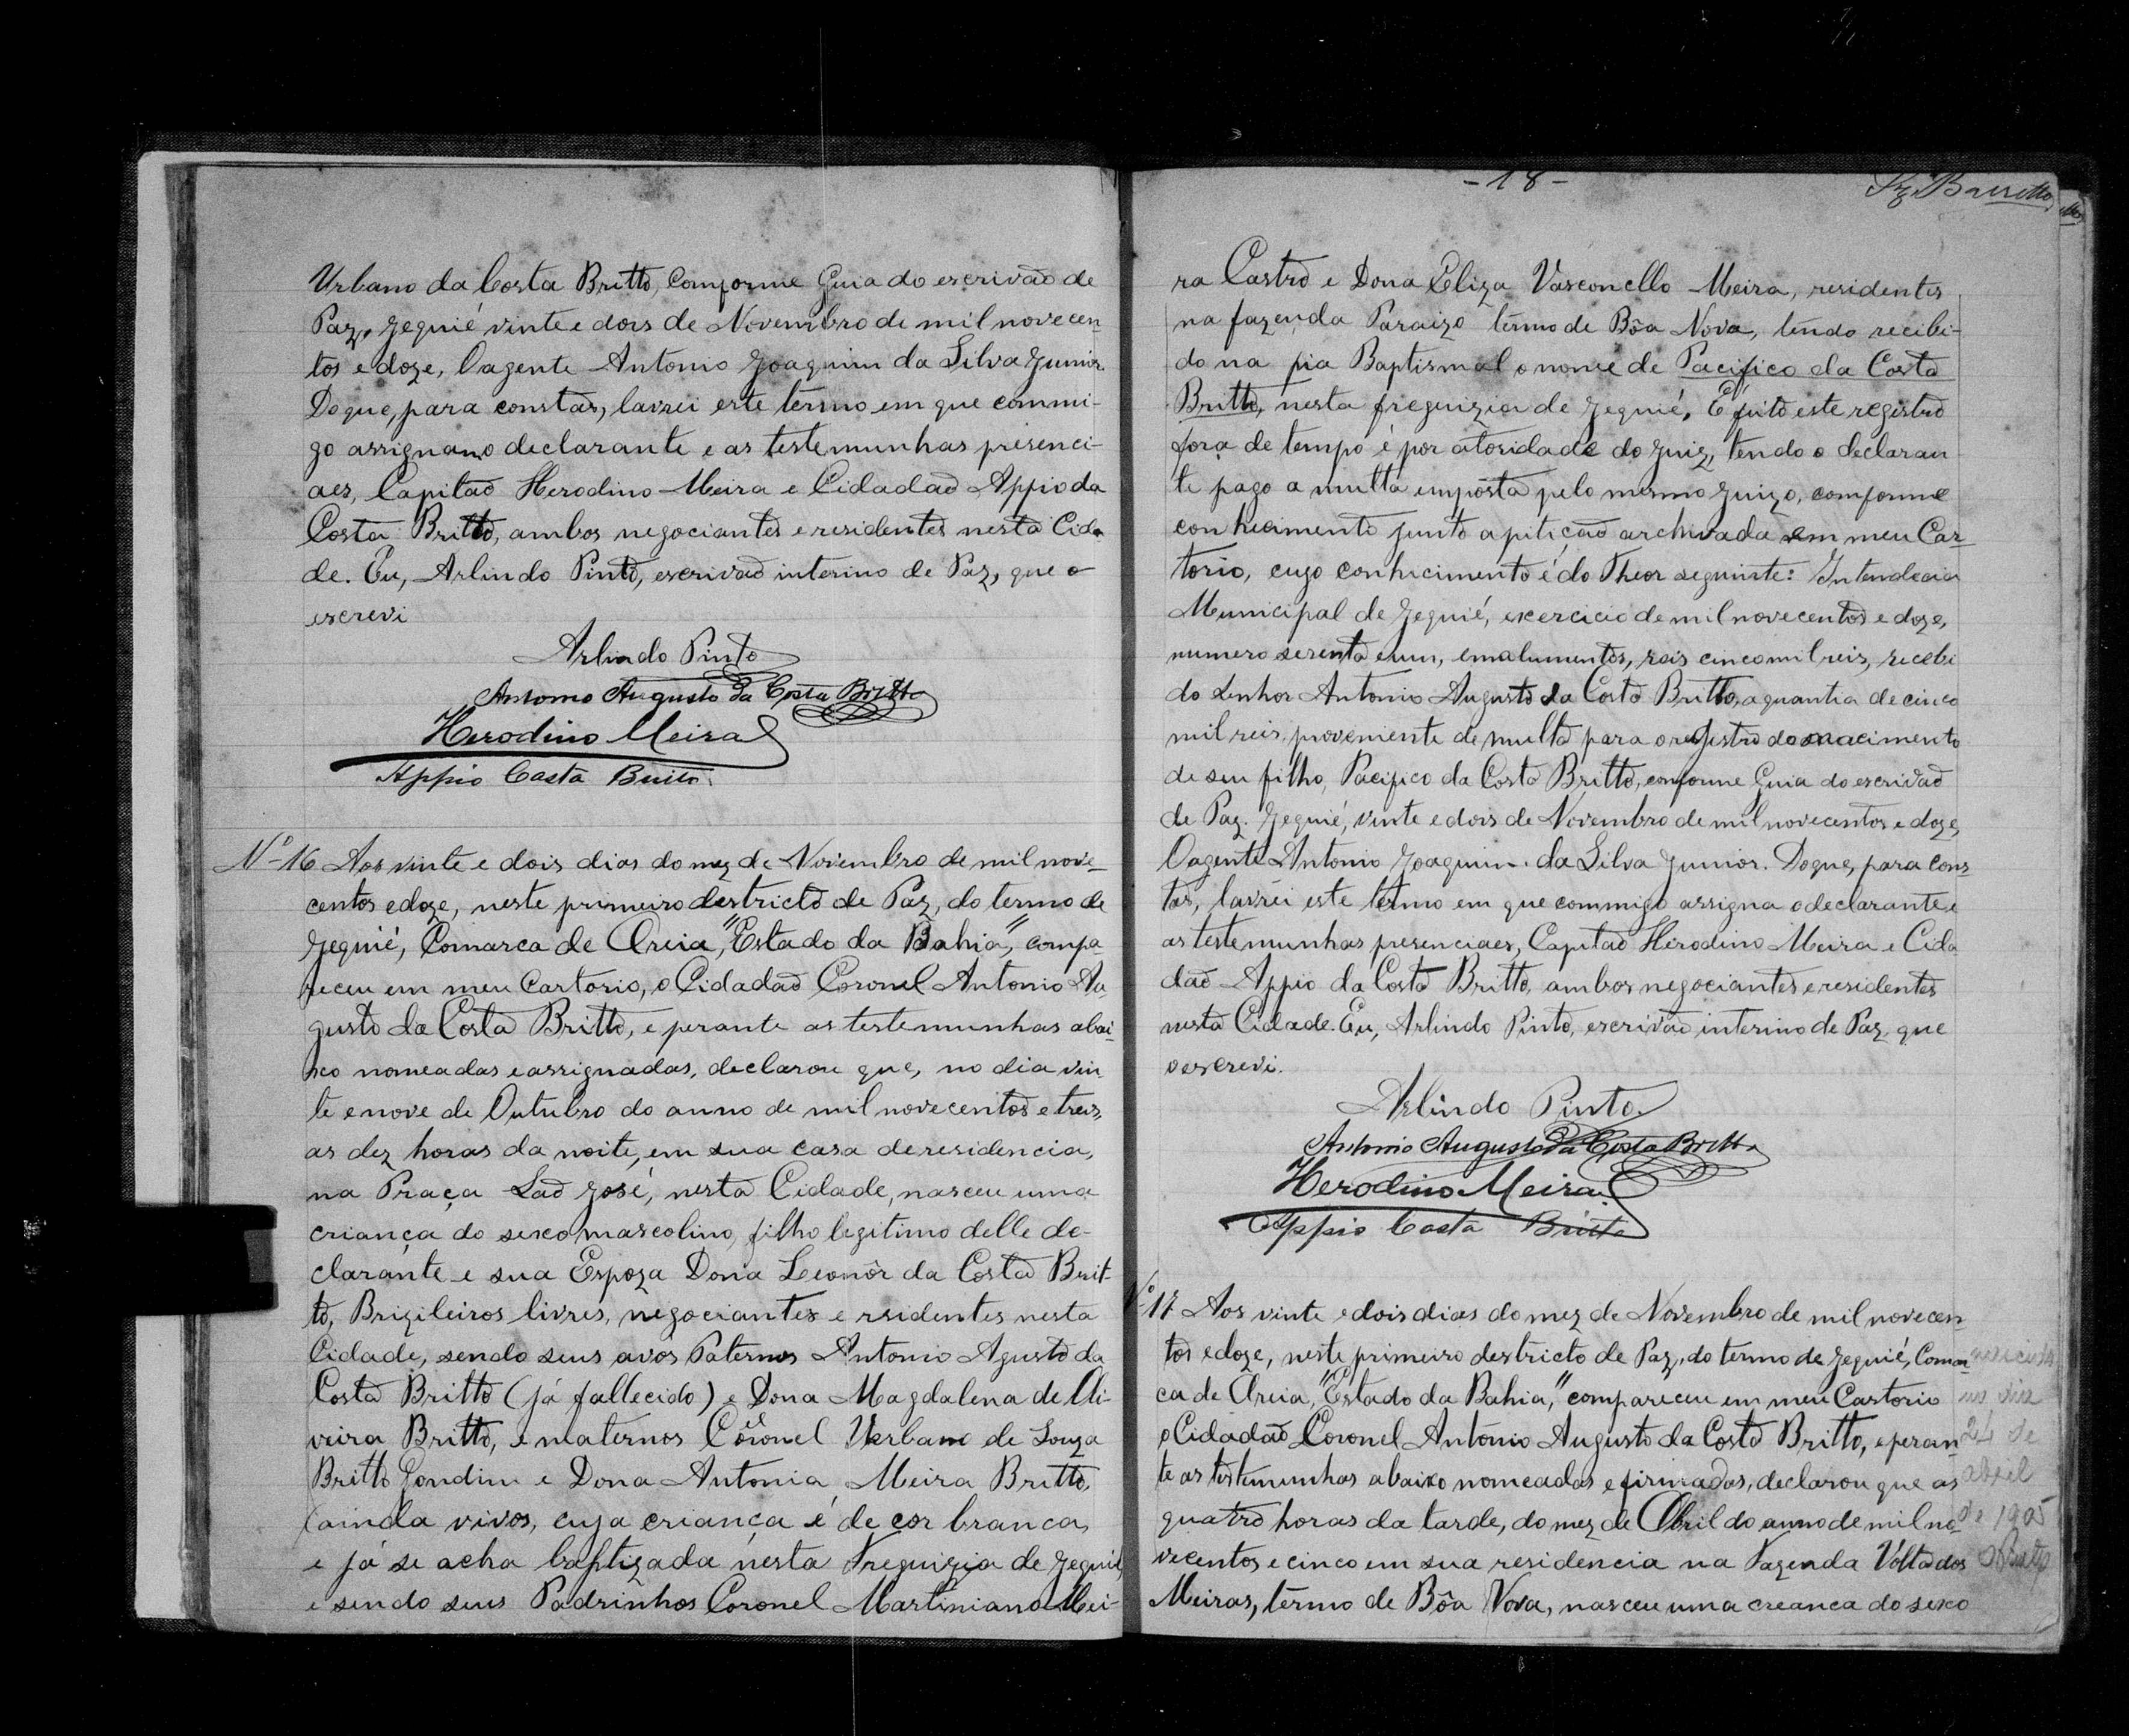 Urbano da Costa Britto, comforme Guia do escrivão de
Paz, Jequié vinte e dois de Novembro de mil novecen
tos e doze, Oagente Antonio Joaquim da Silva Junior.
Do que, para constar, lavrei este termo em que commi-
go assignam o declarante e as testemunhas presenci-
aes, Capitaõ Herodino Meira e Cidadaõ Appio da
Costa Britto, ambos negociantes e residentes nesta Cida
de. Eu, Arlindo Pinto, escrivaõ interino de Paz, que o
escrevi
Arlindo Pinto
Antonio Augusto da Costa Britto
Herodino Meira
Appio Costa Britto.
Nº 16 Aos vinte e dois dias do mez de Novembro de mil nove-
centos e doze, neste primeiro destricto de Paz, do termo de
Jequié, Comarca de Areia, "Estado da Bahia", compa-
receu em meu Cartorio, o Cidadaõ Coronel Antonio Au-
gusto da Costa Britto, e perante as testemunhas abai-
xo nomeadas e assignadas, declarou que, no dia vin-
te e nove de Outubro do anno de mil novecentos e treis,
as dez horas da noite, em sua casa de residencia,
na Praça Saõ José, nesta Cidade, nasceu uma
criança do sexo mascolino, filho legitimo delle de-
clarante e sua Espoza Dona Leonôr da Costa Brit-
to, Brizileiros livres, negociantes e rsidentes nesta
Cidade, sendo seus avos Paternos Antonio Agusto da
Costa Britto (já fallecido) e Dona Magdalena de Oli-
veira Britto, e maternos Coronel Urbano de Souza
Britto Gondim e Dona Antonia Meira Britto,
(ainda vivos, cuja criança é de cor branca,
e já se acha baptizada nesta Freguizia de Jequié,
e sendo seus Padrinhos Coronel Martiniano Mei-
- 18 -
ra Castro e Dona Eliza Vasconcello Meira, residentes
na fazenda Paraizo têrmo de Bôa Nova, tendo recibi-
do na pia Baptismal o nome de Pacifico da Costa
Britto, nesta freguizia de Jequié, E' feito este registro
fora de tempo é por atoridade do Juiz, tendo o declaran
te pago a multa impósta pelo mesmo Juizo, comforme
conhecimento junto a pitiçaõ archivada em meu Car-
torio, cujo conhecimento é do Theor seguinte: Intendecia
Municipal de Jequié, exercicio de mil novecentos e doze,
numero sesenta e um, emalumentos, rais cinco mil reis, recebi
do Senhor Antonio Augusto da Costa Britto, a quantia de cinco
mil reis, proveniente de multa para o registro do nacimento
de seu filho, Pacifico da Costa Britto, conforme Guia do escrivaõ
de Paz. Jequié, vinte e dois de Novembro de mil novecentos e doze,
Oagente Antonio Joaquim da Silva Junior. Do que, para cons-
tar, lavrei este têrmo em que commigo assigna o declarante e
as testemunhas presenciaes, Capitaõ Herodino Meira e Cida
daõ Appio da Costa Britto, ambos negociantes e residentes
nesta Cidade. Eu, Arlindo Pinto, escrivaõ interino de Paz que
o escrevi.
Arlindo Pinto
Antonio Augusto da Costa Britto
Herodino Meira
Appio Costa Britto
Nº 17 Aos vinte e dois dias do mez de Novembro de mil novecen-
tos e doze, neste primeiro destricto de Paz, do termo de Jequié, Comar
ca de Areia, "Estado da Bahia", compareceu em meu Cartorio
o Cidadaõ Coronel Antonio Augusto da Costa Britto, e peran
te as testemunhas abaixo nomeadas e firmadas, declarou que as
quatro horas da tarde, do mez de Abril do anno de mil no-
vecentos e cinco em sua residencia na Fazenda Volta dos
Meiras, têrmo de Bôa Nova, nasceu uma creanca do sexo
24 de
abril
de 1905